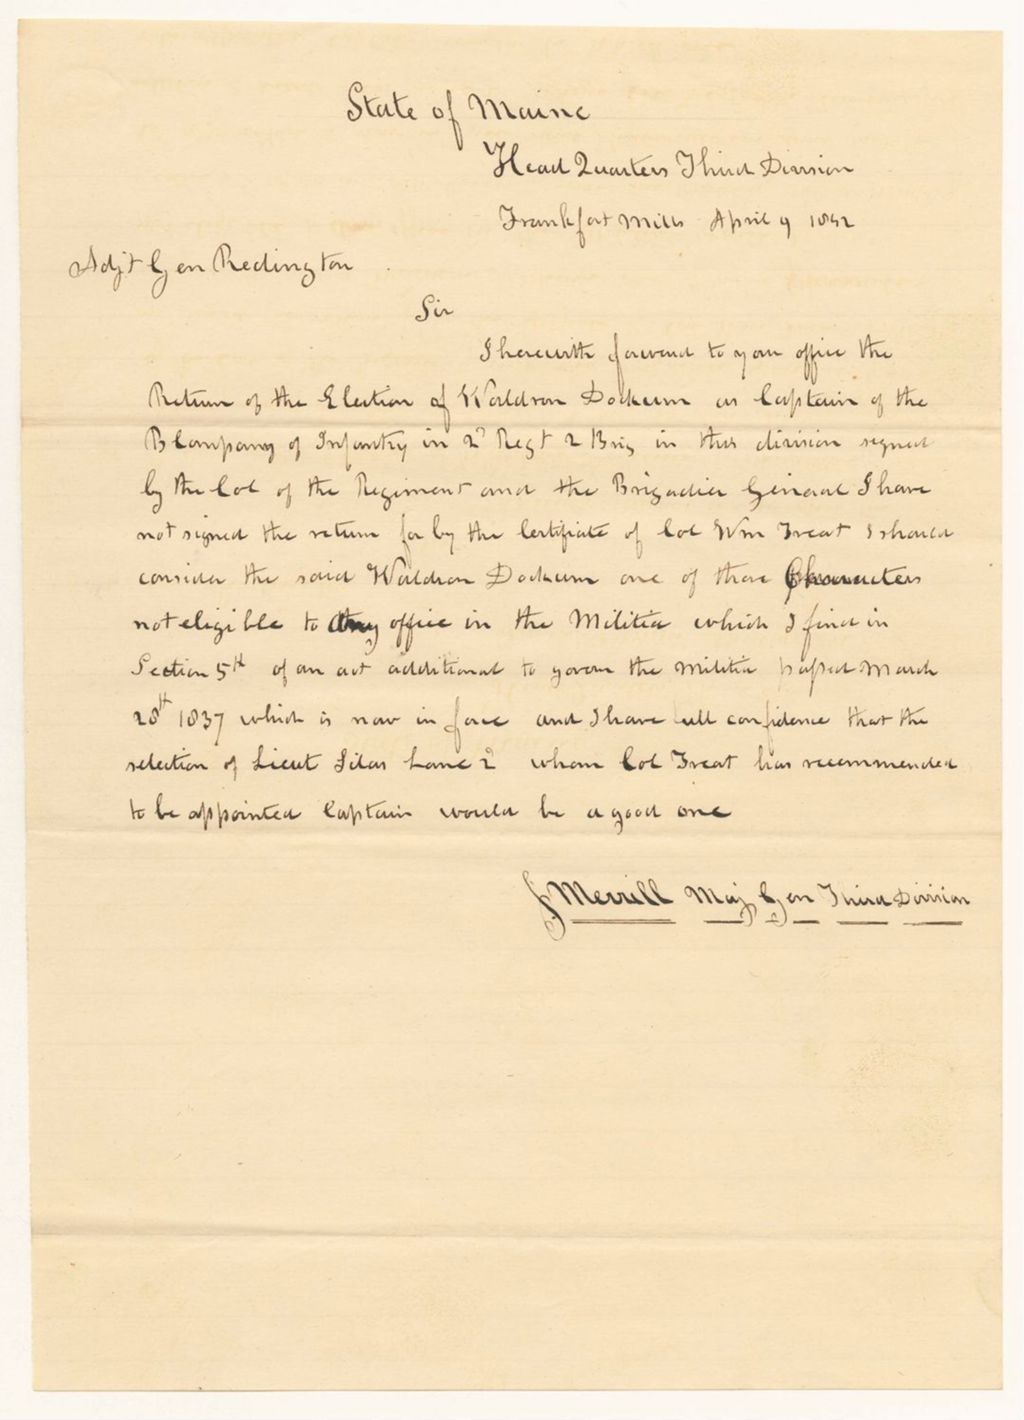 State of Maine
Head Quarters Third Division
Frankfort Mills April 9 1842
Adjt Gen Redington
Sir
I herewith forward to your office the
Return of the Election of Waldron Dockum as Captain of the
B Company of Infantry in 2d Regt 2 Brig in this division signed
by the Col of the Regiment and the Brigadier General I have
not signed the return for by the Certificate of Col Wm Treat I should
consider the said Waldron Dockum one of those Characters
not eligible to any office in the Militia which I find in
Section 5th of an act additional to govern the Militia passed March
28th 1837 which is now in force and I have full confidence that the
selection of Lieut Silas Lane 2d whom Col Treat has recommended
to be appointed Captain would be a good one
J Merrill Maj Gen Third Division